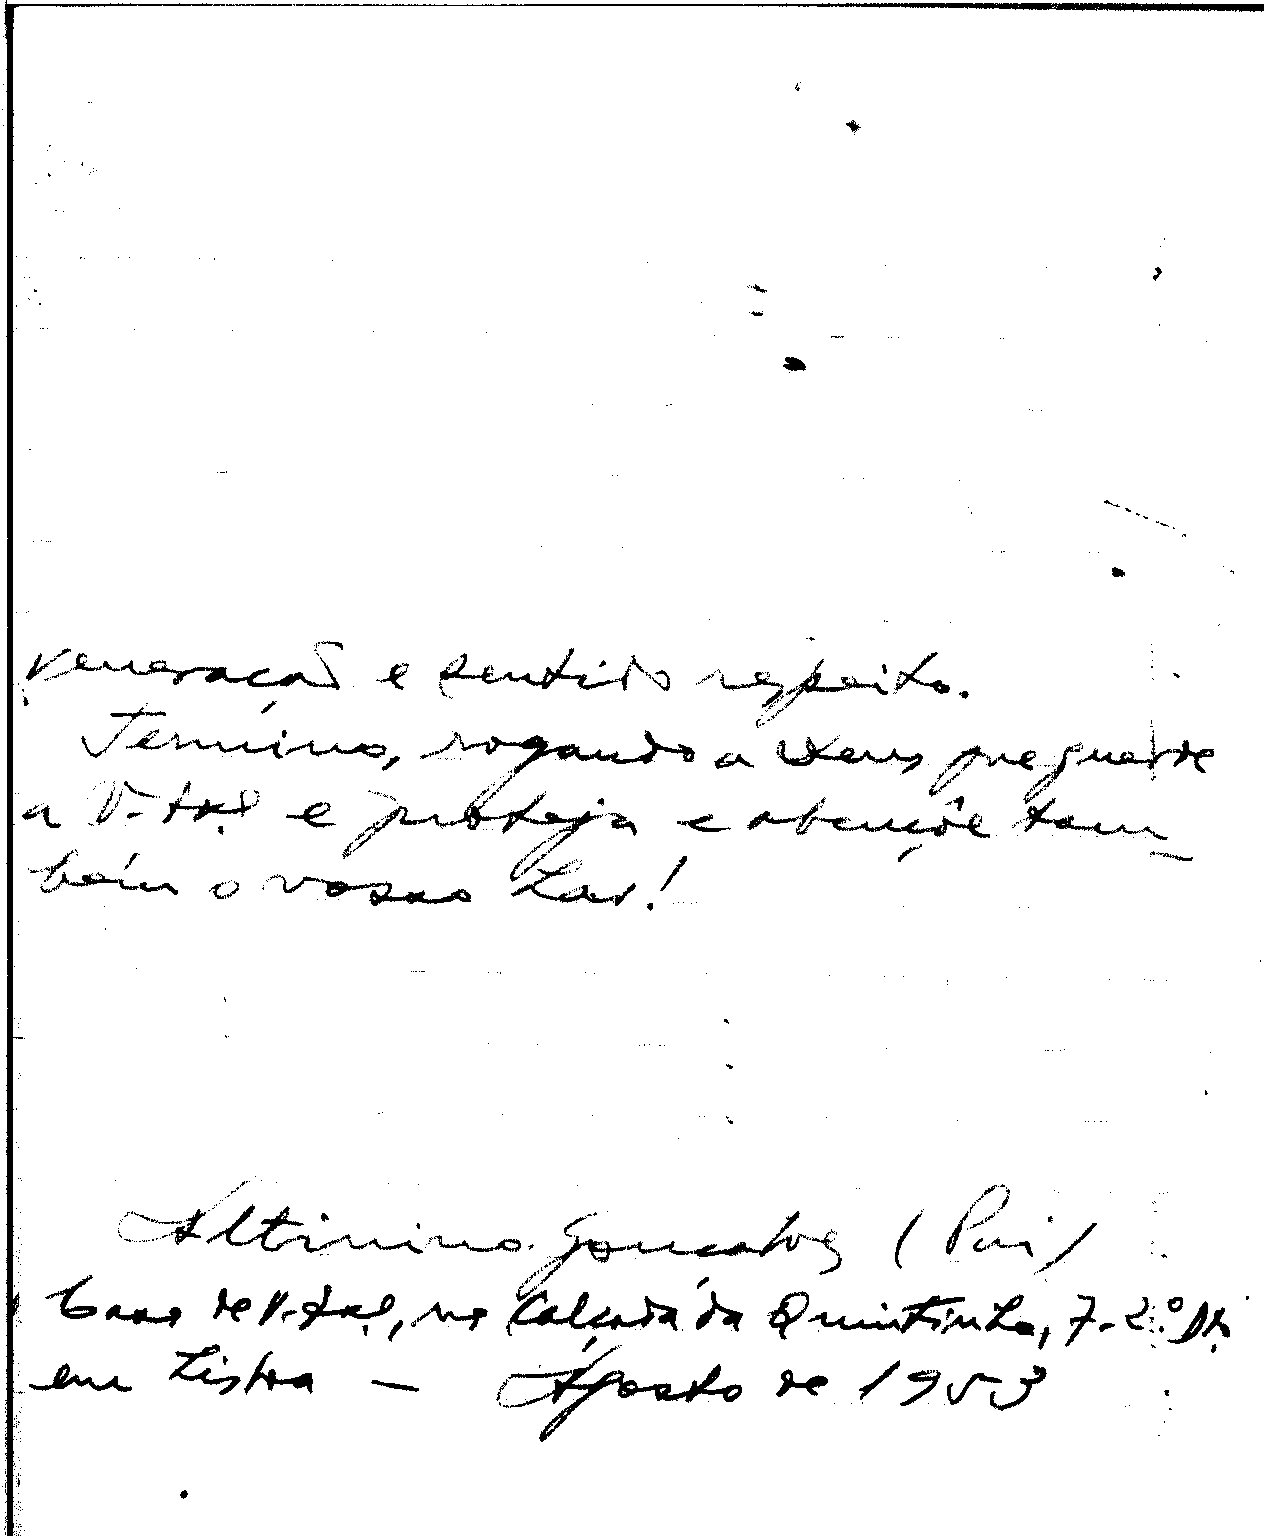 veneração e sentido respeito.
Termino, rogando a Deus que guarde
a V. Ex.ª e proteja e abençõe tam-
bém o vosso Lar!
Altinino Gonçalves (Pai)
Casa de V. Ex.ª, na Calçada da Quintinha, 7-2.º Dt.
em Lisboa — Agosto de 1953